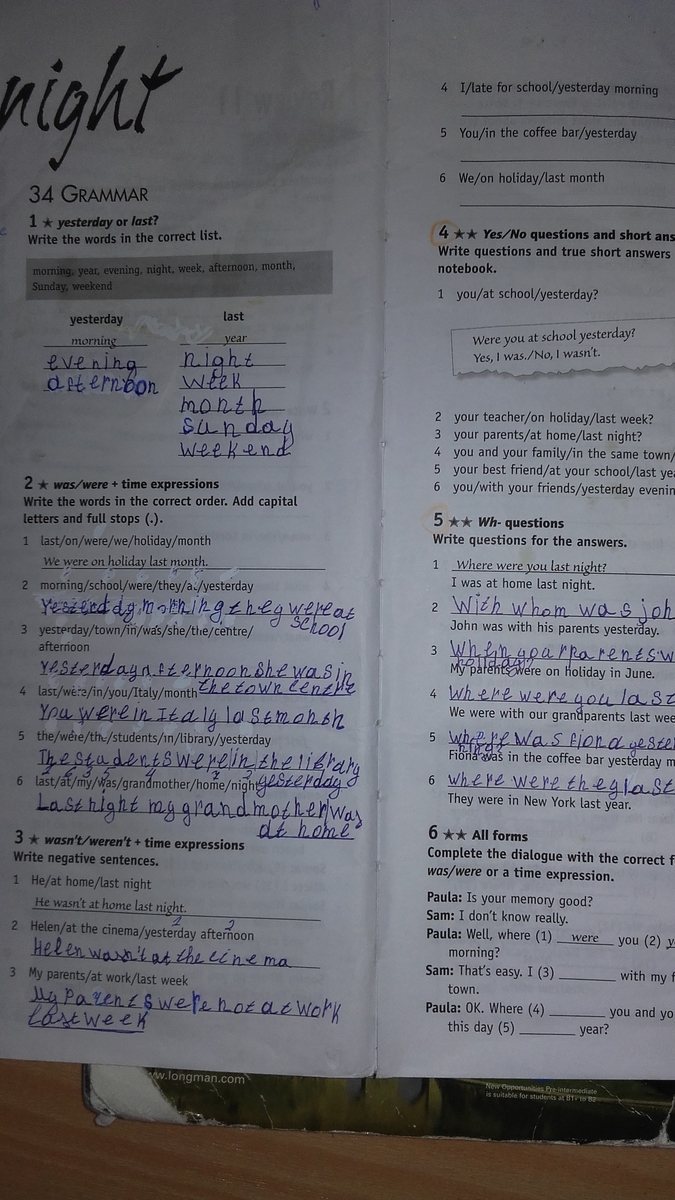 night
34 GRAMMAR
1 ★ yesterday or last?
Write the words in the correct list.
morning, year, evening, night, week, afternoon, month,
Sunday, weekend
yesterday last
morning year
evening night
afternoon week
month
sunday
weekend
2 ★ was/were + time expressions
Write the words in the correct order. Add capital
letters and full stops (.).
1 last/on/were/we/holiday/month
We were on holiday last month.
2 morning/school/were/they/at/yesterday
Yesterday morning they were at
school
3 yesterday/town/in/was/she/the/centre/
afternoon
Yesterday afternoon she was in
the town centre
4 last/were/in/you/Italy/month
You were in Italy last month
5 the/were/the/students/in/library/yesterday
The students were in the library
yesterday
6 last/at/my/was/grandmother/home/night
Last night my grandmother was
at home
3 ★ wasn't/weren't + time expressions
Write negative sentences.
1 He/at home/last night
He wasn't at home last night.
2 Helen/at the cinema/yesterday afternoon
Helen wasn't at the cinema
3 My parents/at work/last week
My Parents were not at work
last week
4 I/late for school/yesterday morning
5 You/in the coffee bar/yesterday
6 We/on holiday/last month
4 ★★ Yes/No questions and short ans
Write questions and true short answers
notebook.
1 you/at school/yesterday?
Were you at school yesterday?
Yes, I was./No, I wasn't.
2 your teacher/on holiday/last week?
3 your parents/at home/last night?
4 you and your family/in the same town/
5 your best friend/at your school/last yea
6 you/with your friends/yesterday evenin
5 ★★ Wh- questions
Write questions for the answers.
1 Where were you last night?
I was at home last night.
2 With whom was joh
John was with his parents yesterday.
3 When your parents w
holiday?
My parents were on holiday in June.
4 Where were you last
We were with our grandparents last wee
5 where was fiona yester
Fiona was in the coffee bar yesterday m
6 where were they last
They were in New York last year.
6 ★★ All forms
Complete the dialogue with the correct f
was/were or a time expression.
Paula: Is your memory good?
Sam: I don't know really.
Paula: Well, where (1) were you (2) y
morning?
Sam: That's easy. I (3) ________ with my f
town.
Paula: OK. Where (4) ________ you and yo
this day (5) ________ year?
ww.longman.com
New Opportunities Pre-intermediate
is suitable for students at B1+ to B2